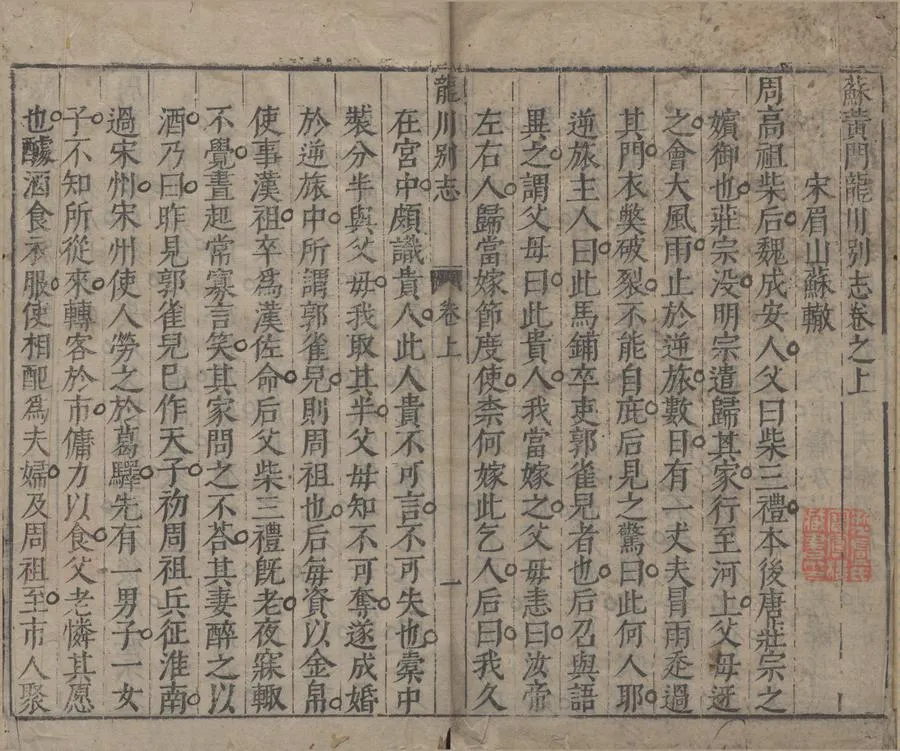 蘇黃門龍川別志卷之上
宋眉山蘇轍
周高祖柴后魏成安人父曰柴三禮本後唐莊宗之
嬪御也莊宗没明宗遣歸其家行至河上父母迓
之會大風雨止於逆旅數日有一丈夫冒雨走過
其門衣獘破裂不能自庇后見之驚曰此何人耶
逆旅主人曰此馬鋪卒吏郭雀兒者也后召與語
異之謂父母曰此貴人我當嫁之父母恚曰汝帝
左右人歸當嫁節度使柰何嫁此乞人后曰我久
龍川别志 卷上 一
在宮中頗識貴人此人貴不可言不可失也橐中
裝分半與父母我取其半父母知不可奪遂成婚
於逆旅中所謂郭雀兒則周祖也后每資以金帛
使事漢祖卒爲漢佐命后父柴三禮旣老夜寐輙
不覺晝起常寡言笑其家問之不荅其妻醉之以
酒乃曰昨見郭雀兒已作天子初周祖兵征淮南
過宋州宋州使人勞之於葛驛先有一男子一女
子不知所從來轉客於市傭力以食父老憐其愿
也醵酒食衣服使相配爲夫婦及周祖至市人聚